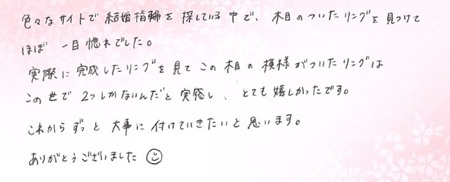 色々なサイトで結婚指輪を探している中で、木目のついたリングを見つけて
ほぼ一目惚れでした。
実際に完成したリングを見てこの木目の模様がついたリングは
この世で2つしかないんだと実感し、とても嬉しかったです。
これからずっと大事に付けていきたいと思います。
ありがとうございました☺